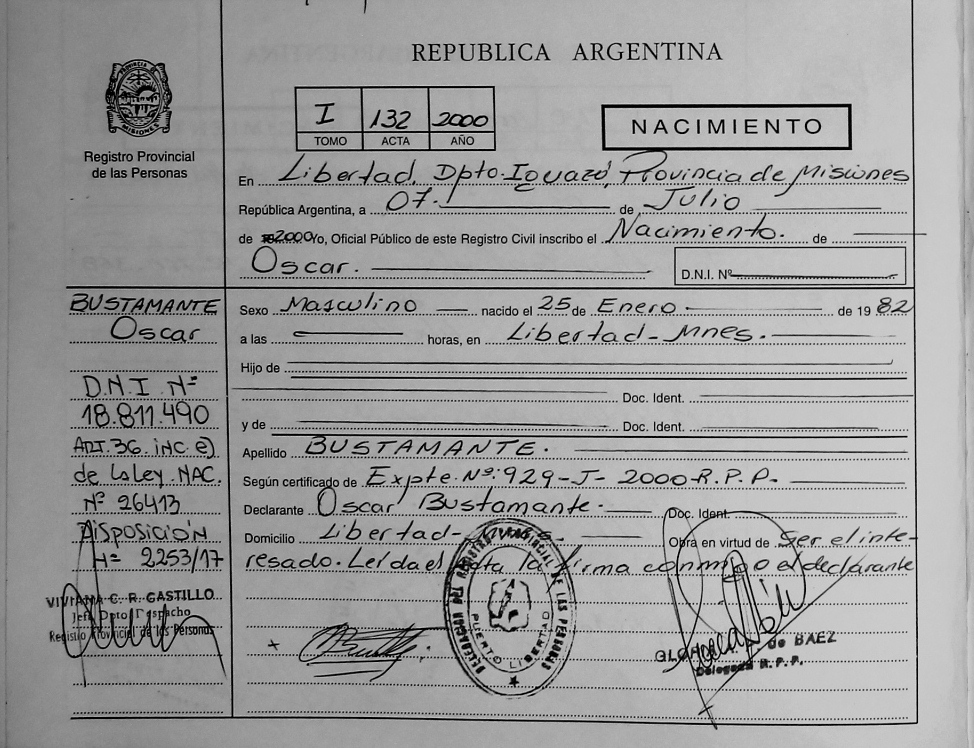 REPUBLICA ARGENTINA
PROVINCIA DE MISIONES
Registro Provincial
de las Personas
I 132 2000
TOMO ACTA AÑO
NACIMIENTO
En Libertad, Dpto. Iguazú, Provincia de Misiones
República Argentina, a 07. de Julio
de 2000 Yo, Oficial Público de este Registro Civil inscribo el Nacimiento. de
Oscar. D.N.I. Nº
BUSTAMANTE
Oscar
D.N.I Nº
18.811.490
ART. 36. iNC. e)
de la Ley. NAC.
Nº 26413
DISPOSICIÓN
Nº 2253/17
VIVIANA C. R. CASTILLO
Jefe Dpto Despacho
Registro Provincial de las Personas
Sexo Masculino nacido el 25 de Enero de 19 82
a las horas, en Libertad - Mnes.
Hijo de
Doc. Ident.
y de Doc. Ident.
Apellido BUSTAMANTE.
Según certificado de Expte. Nº: 929-J- 2000-R.P.P.
Declarante Oscar Bustamante. Doc. Ident.
Domicilio Libertad - Obra en virtud de Ser el inte-
resado. Leída el acta la firma conmigo el declarante
DELEGACION DEL REGISTRO PROVINCIAL DE LAS PERSONAS
PUERTO LIBERTAD
de BAEZ
Delegada R.P.P.